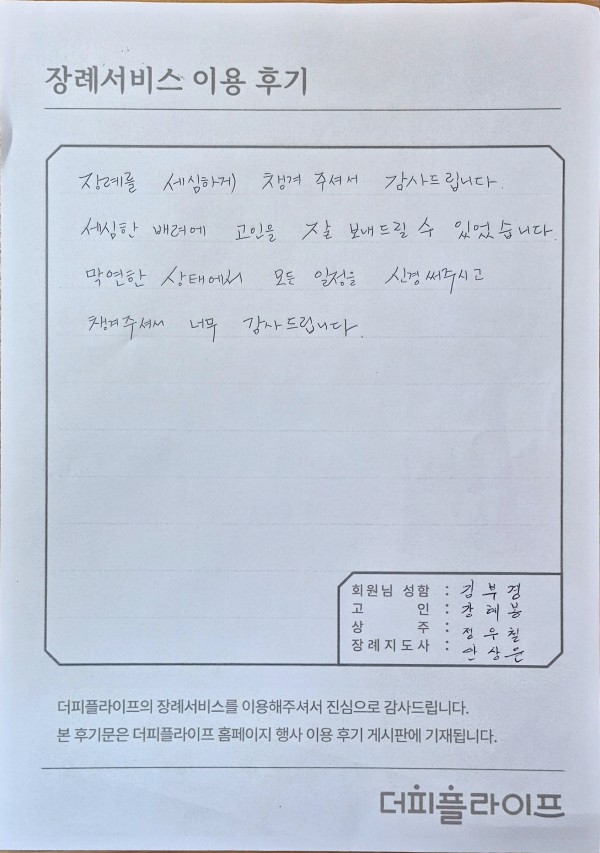 장례서비스 이용 후기
장례를 세심하게 챙겨 주셔서 감사드립니다.
세심한 배려에 고인을 잘 보내드릴 수 있었습니다.
막연한 상태에서 모든 일정을 신경써주시고
챙겨주셔서 너무 감사드립니다.
회원님 성함 : 김부경
고 인 : 강혜봉
상 주 : 정우칠
장례지도사 : 안상윤
더피플라이프의 장례서비스를 이용해주셔서 진심으로 감사드립니다.
본 후기문은 더피플라이프 홈페이지 행사 이용 후기 게시판에 기재됩니다.
더피플라이프